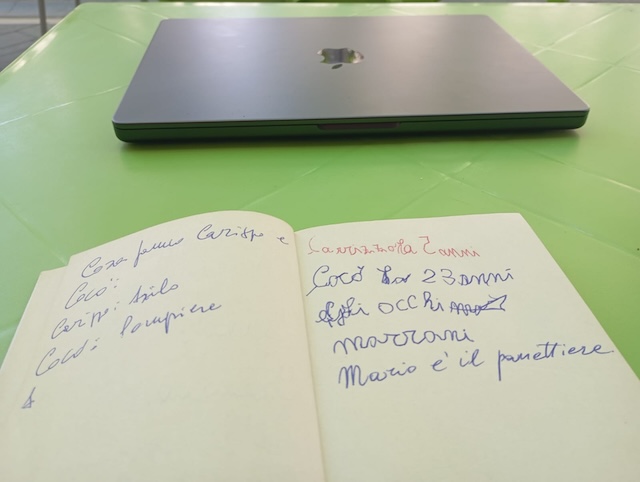 Cosa fanno Carispo e
Cocò:
Carispo: Asilo
Cocò: Pompiere
A
7 anni
Cocò ha 23 anni
gli occhi
marroni
Mario è il panettiere